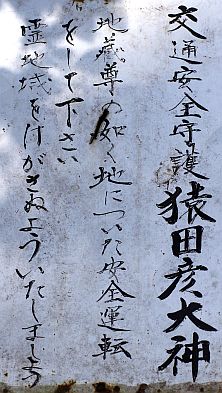 交通安全守護 猿田彦大神
地蔵尊の如く地についた安全運転
をして下さい
霊地域をけがさぬよういたしましょう